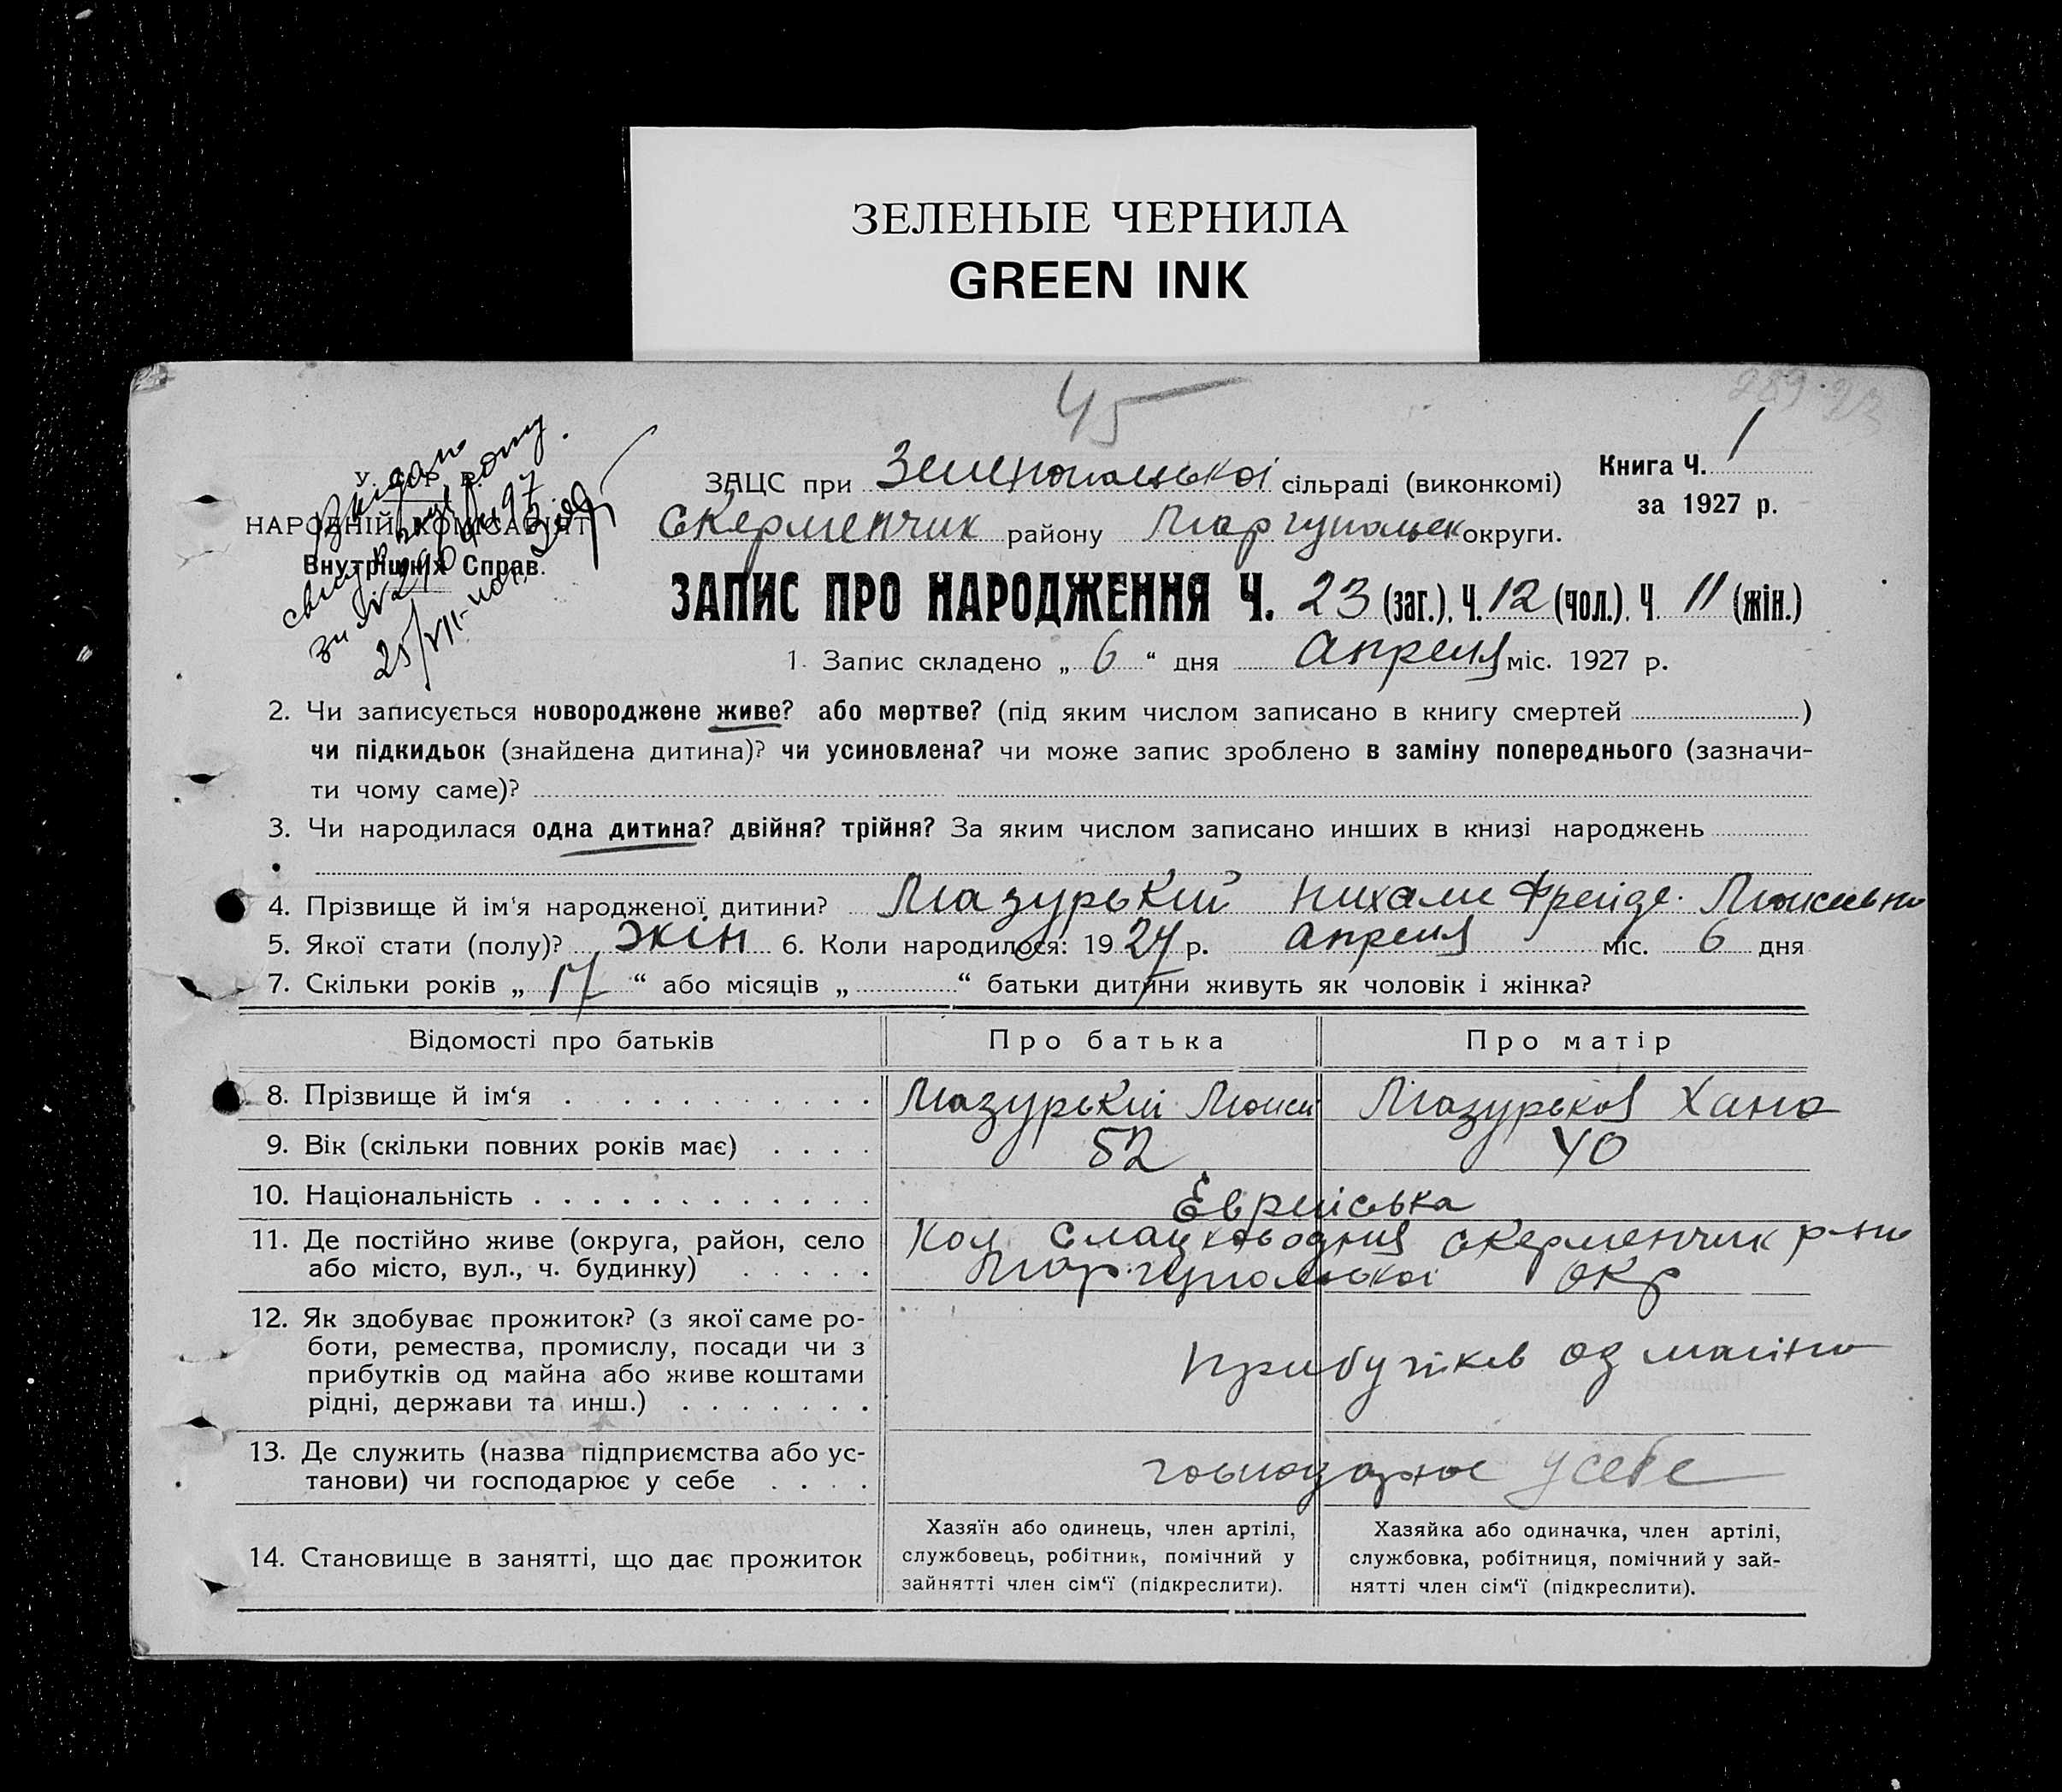 ЗЕЛЕНЫЕ ЧЕРНИЛА
GREEN INK
45
У. С. Р. Р.
НАРОДНІЙ КОМІСАРІЯТ
Внутрішніх Справ.
Книга Ч. 1
за 1927 р.
ЗАЦС при Зеленопольської сільраді (виконкомі)
Скерменчик району Маріупольск округи.
ЗАПИС ПРО НАРОДЖЕННЯ Ч. 23 (заг.), Ч. 12 (чол.), Ч. 11 (жін.)
1. Запис складено „ 6 “ дня Апреля міс. 1927 р.
2. Чи записується новороджене живе? або мертве? (під яким числом записано в книгу смертей )
чи підкидьок (знайдена дитина)? чи усиновлена? чи може запис зроблено в заміну попереднього (зазначи-
ти чому саме)?
3. Чи народилася одна дитина? двійня? трійня? За яким числом записано инших в книзі народжень
4. Прізвище й ім'я народженої дитини? Мазурький Нихами Фрейде.
5. Якої стати (полу)? жін 6. Коли народилося: 1927 р. Апреля міс. 6 дня
7. Скільки років „ 17 “ або місяців „ “ батьки дитини живуть як чоловік і жінка?
Відомості про батьків Про батька Про матір
8. Прізвище й ім‘я Мазурький Моисей Мазурькоя Хана
9. Вік (скільки повних років має) 52 40
10. Національність Еврейська
11. Де постійно живе (округа, район, село Кол Сладководная Скерменчик р-на
або місто, вул., ч. будинку) Маріупольської окр
12. Як здобуває прожиток? (з якої саме ро-
боти, ремества, промислу, посади чи з
прибутків од майна або живе коштами прибутків од майна
рідні, держави та инш.)
13. Де служить (назва підприємства або ус-
танови) чи господарює у себе господарює у себе
14. Становище в занятті, що дає прожиток
Хазяїн або одинець, член артілі,
службовець, робітник, помічний у
зайнятті член сім‘ї (підкреслити).
Хазяйка або одиначка, член артілі,
службовка, робітниця, помічний у зай-
нятті член сім‘ї (підкреслити).